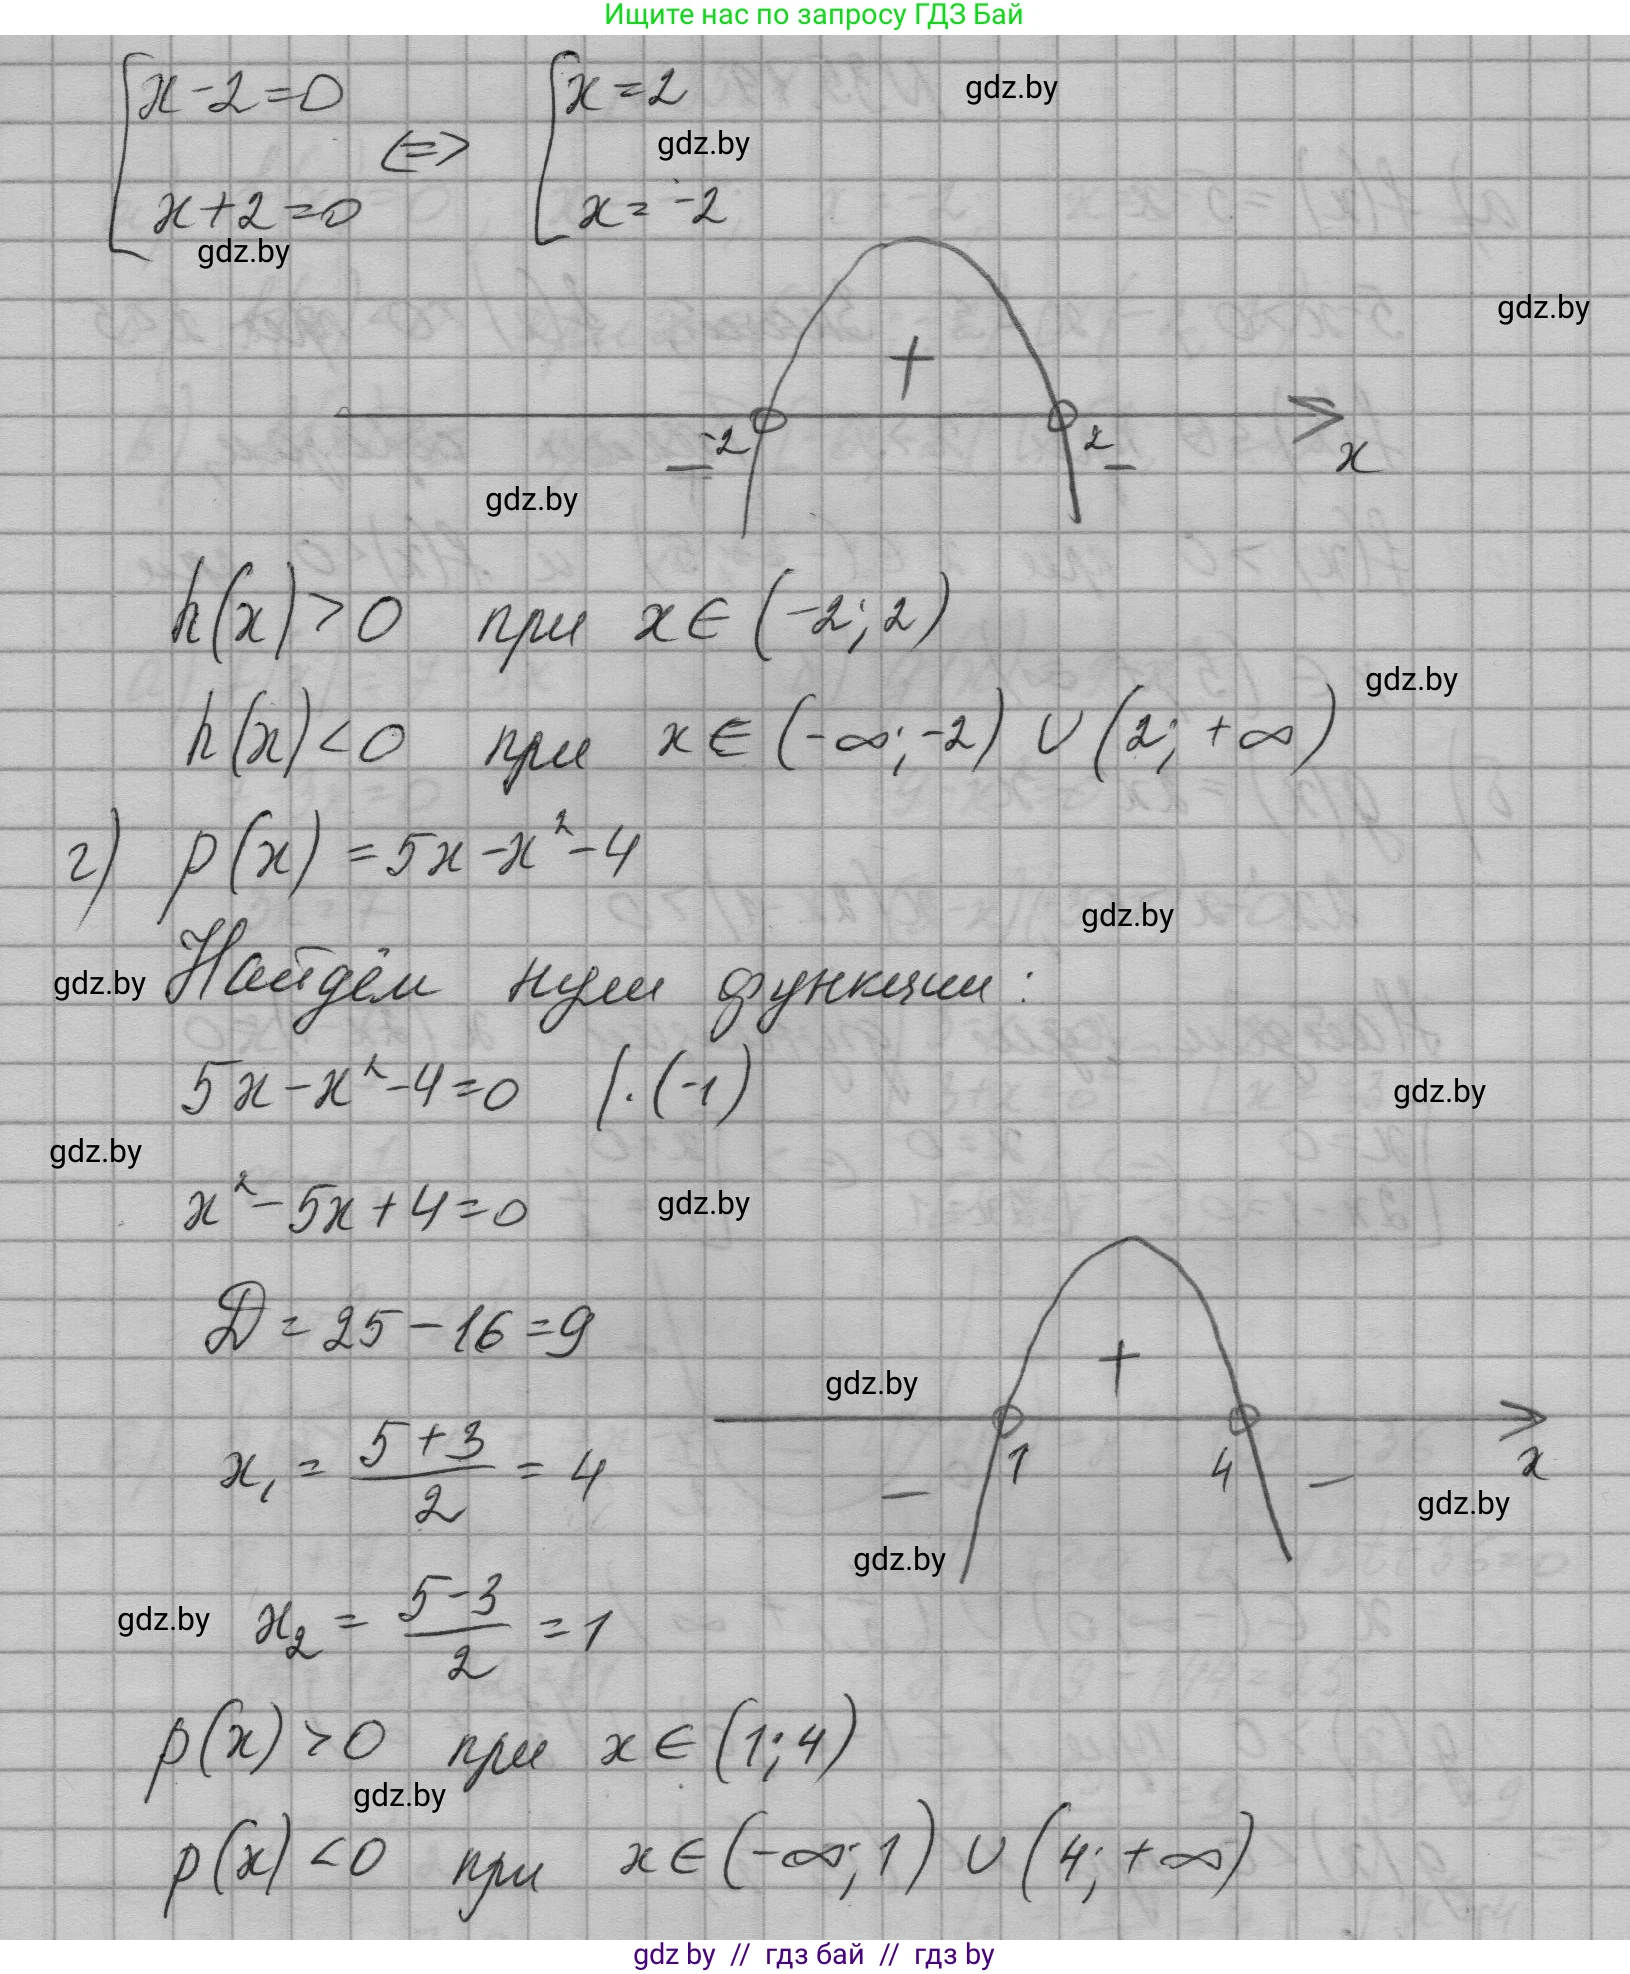 Ищите нас по запросу ГДЗ Бай
x-2=0 <=> x=2
gdz.by
gdz.by
x+2=0 x=-2
gdz.by
gdz.by
+
-2 2 x
- -
gdz.by
h(x)>0 при x∈(-2;2)
gdz.by
h(x)<0 при x∈(-∞;-2)∪(2;+∞)
г) p(x)=5x-x²-4
gdz.by
gdz.by Найдём нули функции:
5x-x²-4=0 |·(-1)
gdz.by
gdz.by
x²-5x+4=0 gdz.by
D=25-16=9
+
gdz.by
x₁=(5+3)/2=4
1 4 x
- -
gdz.by
gdz.by
gdz.by x₂=(5-3)/2=1
p(x)>0 при x∈(1;4)
gdz.by
p(x)<0 при x∈(-∞;1)∪(4;+∞)
gdz by // гдз бай // гдз by